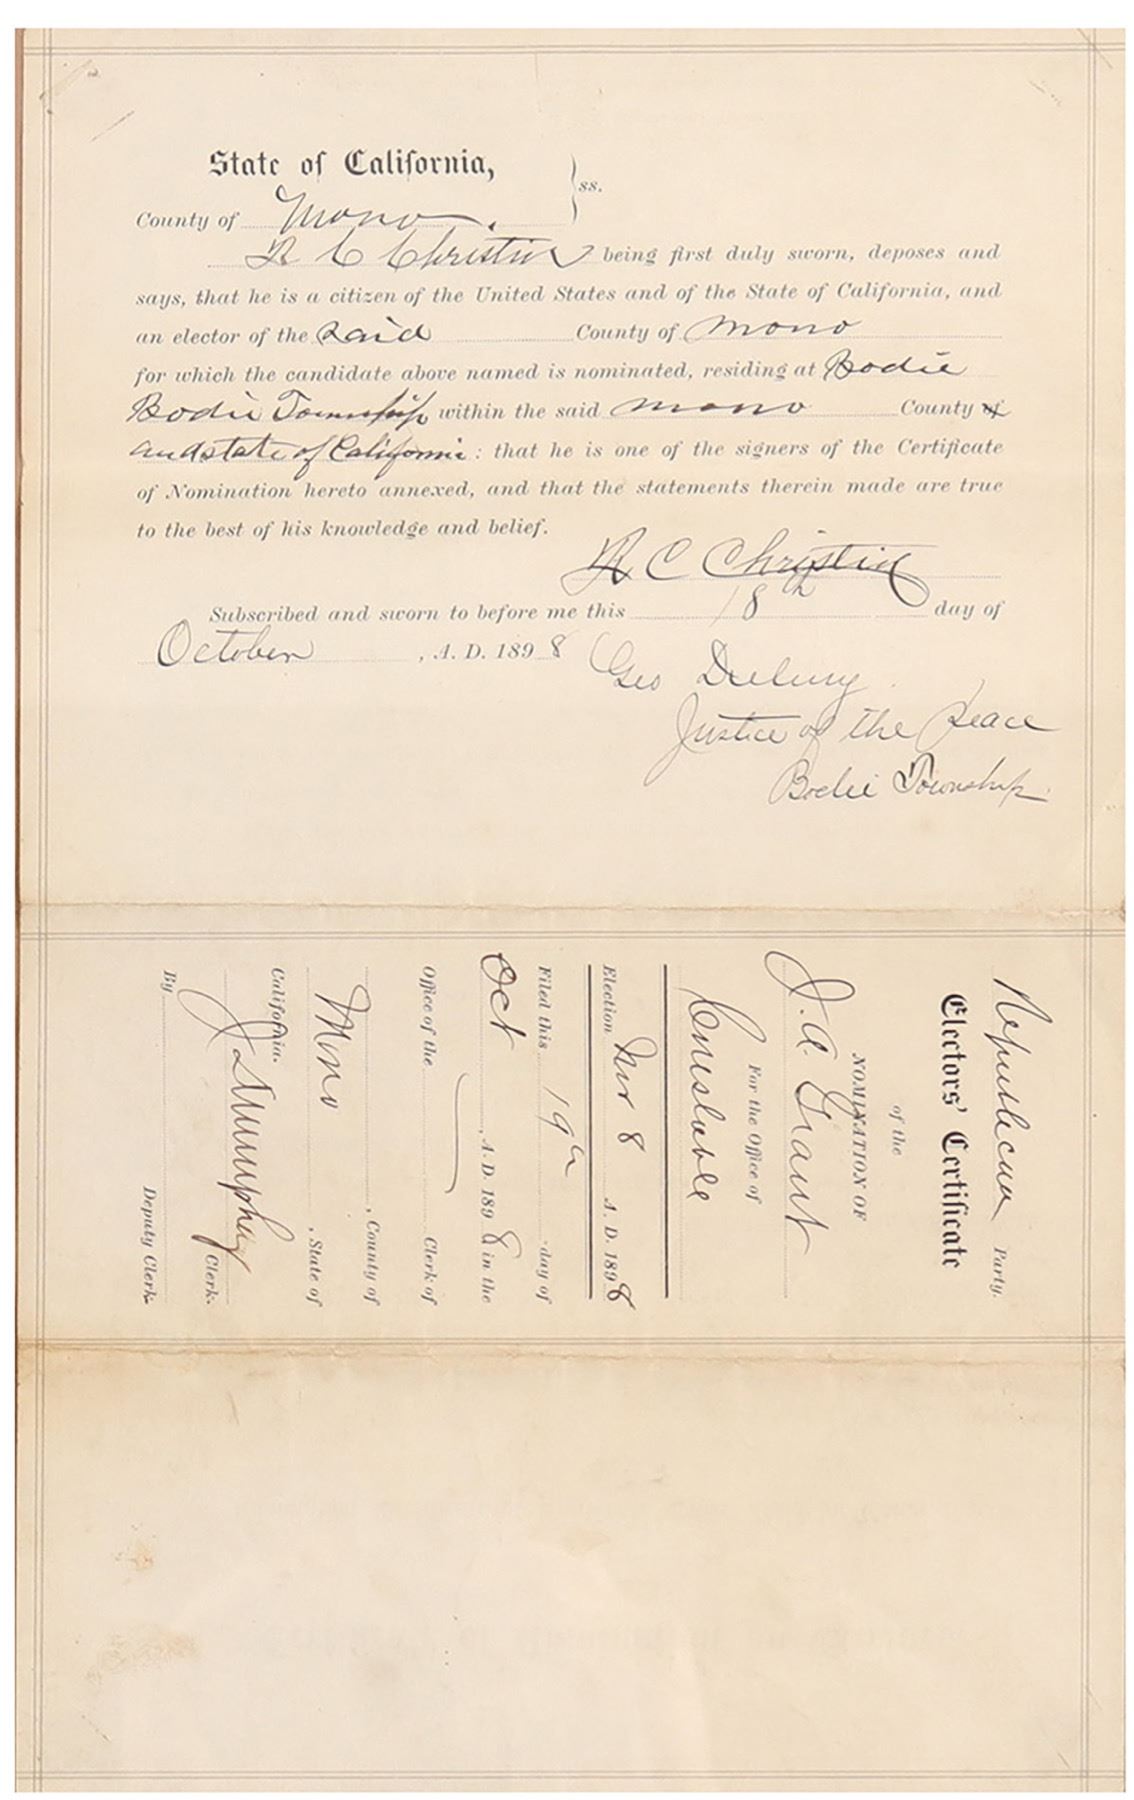 State of California,
ss.
County of Mono.
N C Christin being first duly sworn, deposes and
says, that he is a citizen of the United States and of the State of California, and
an elector of the said County of Mono
for which the candidate above named is nominated, residing at Bodie
Bodie Township within the said Mono County of
and State of California: that he is one of the signers of the Certificate
of Nomination hereto annexed, and that the statements therein made are true
to the best of his knowledge and belief.
N C Christin
Subscribed and sworn to before me this 18th day of
October, A. D. 1898
Geo
Justice of the Peace
Bodie Township
Republican Party.
Electors' Certificate
of the
NOMINATION OF
J. A. Grant
For the Office of
Constable
Election Nov 8 A. D. 1898
Filed this 19th day of
Oct, A. D. 1898 in the
Office of the Clerk of
, County of
Mono, State of
California.
J D Murphey Clerk.
By Deputy Clerk.